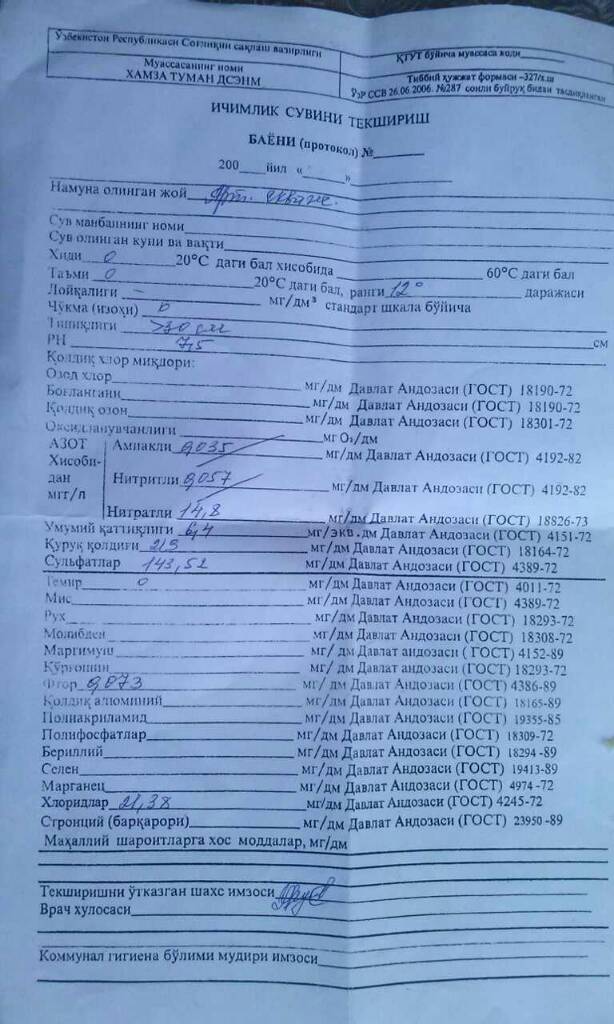 Ўзбекистон Республикаси Соғлиқни сақлаш вазирлиги
Муассасанинг номи
ХАМЗА ТУМАН ДСЭНМ
КТУТ бўйича муассаса коди
Тиббий ҳужжат формаси –327/х.ш
ЎзР ССВ 26.06 2006. №287 сонли буйруқ билан тасдиқланган
ИЧИМЛИК СУВИНИ ТЕКШИРИШ
БАЁНИ (протокол) №
200 йил « »
Намуна олинган жой Арт. скваж.
Сув манбаининг номи
Сув олинган куни ва вақти
Хиди 0 20°С даги бал хисобида 60°С даги бал
Таъми 0 20°С даги бал, ранги 12° даражаси
Лойқалиги – мг/дм³ стандарт шкала бўйича
Чўкма (изоҳи) 0
Тиниқлиги >30 см см
РН 7,5
Қолдиқ хлор миқдори:
Озод хлор мг/дм Давлат Андозаси (ГОСТ) 18190-72
Боғлангани мг/дм Давлат Андозаси (ГОСТ) 18190-72
Қолдиқ озон мг/дм Давлат Андозаси (ГОСТ) 18301-72
Оксидланувчанлиги мг О₂/дм
АЗОТ Аммакли 0,035 мг/дм Давлат Андозаси (ГОСТ) 4192-82
Хисоби-
дан Нитритли 0,057 мг/дм Давлат Андозаси (ГОСТ) 4192-82
мгг/л
Нитратли 14,8 мг/дм Давлат Андозаси (ГОСТ) 18826-73
Умумий қаттиқлиги 6,4 мг/экв.дм Давлат Андозаси (ГОСТ) 4151-72
Қуруқ қолдиғи мг/дм Давлат Андозаси (ГОСТ) 18164-72
Сульфатлар 143,52 мг/дм Давлат Андозаси (ГОСТ) 4389-72
Темир 0 мг/дм Давлат Андозаси (ГОСТ) 4011-72
Мис мг/дм Давлат Андозаси (ГОСТ) 4389-72
Рух мг/дм Давлат Андозаси (ГОСТ) 18293-72
Молибден мг/дм Давлат Андозаси (ГОСТ) 18308-72
Маргимуш мг/дм Давлат андозаси (ГОСТ) 4152-89
Қўрғошин мг/дм Давлат андозаси (ГОСТ) 18293-72
Фтор 0,073 мг/ дм Давлат Андозаси (ГОСТ) 4386-89
Қолдиқ алюминий мг/дм Давлат Андозаси (ГОСТ) 18165-89
Полиакриламид мг/дм Давлат Андозаси (ГОСТ) 19355-85
Полифосфатлар мг/дм Давлат Андозаси (ГОСТ) 18309-72
Бериллий мг/дм Давлат Андозаси (ГОСТ) 18294 -89
Селен мг/дм Давлат Андозаси (ГОСТ) 19413-89
Марганец мг/дм Давлат Андозаси (ГОСТ) 4974 -72
Хлоридлар 21,38 мг/дм Давлат Андозаси (ГОСТ) 4245-72
Стронций (барқарори) мг/дм Давлат Андозаси (ГОСТ) 23950 -89
Маҳаллий шароитларга хос моддалар, мг/дм
Текширишни ўтказган шахс имзоси
Врач хулосаси
Коммунал гигиена бўлими мудири имзоси